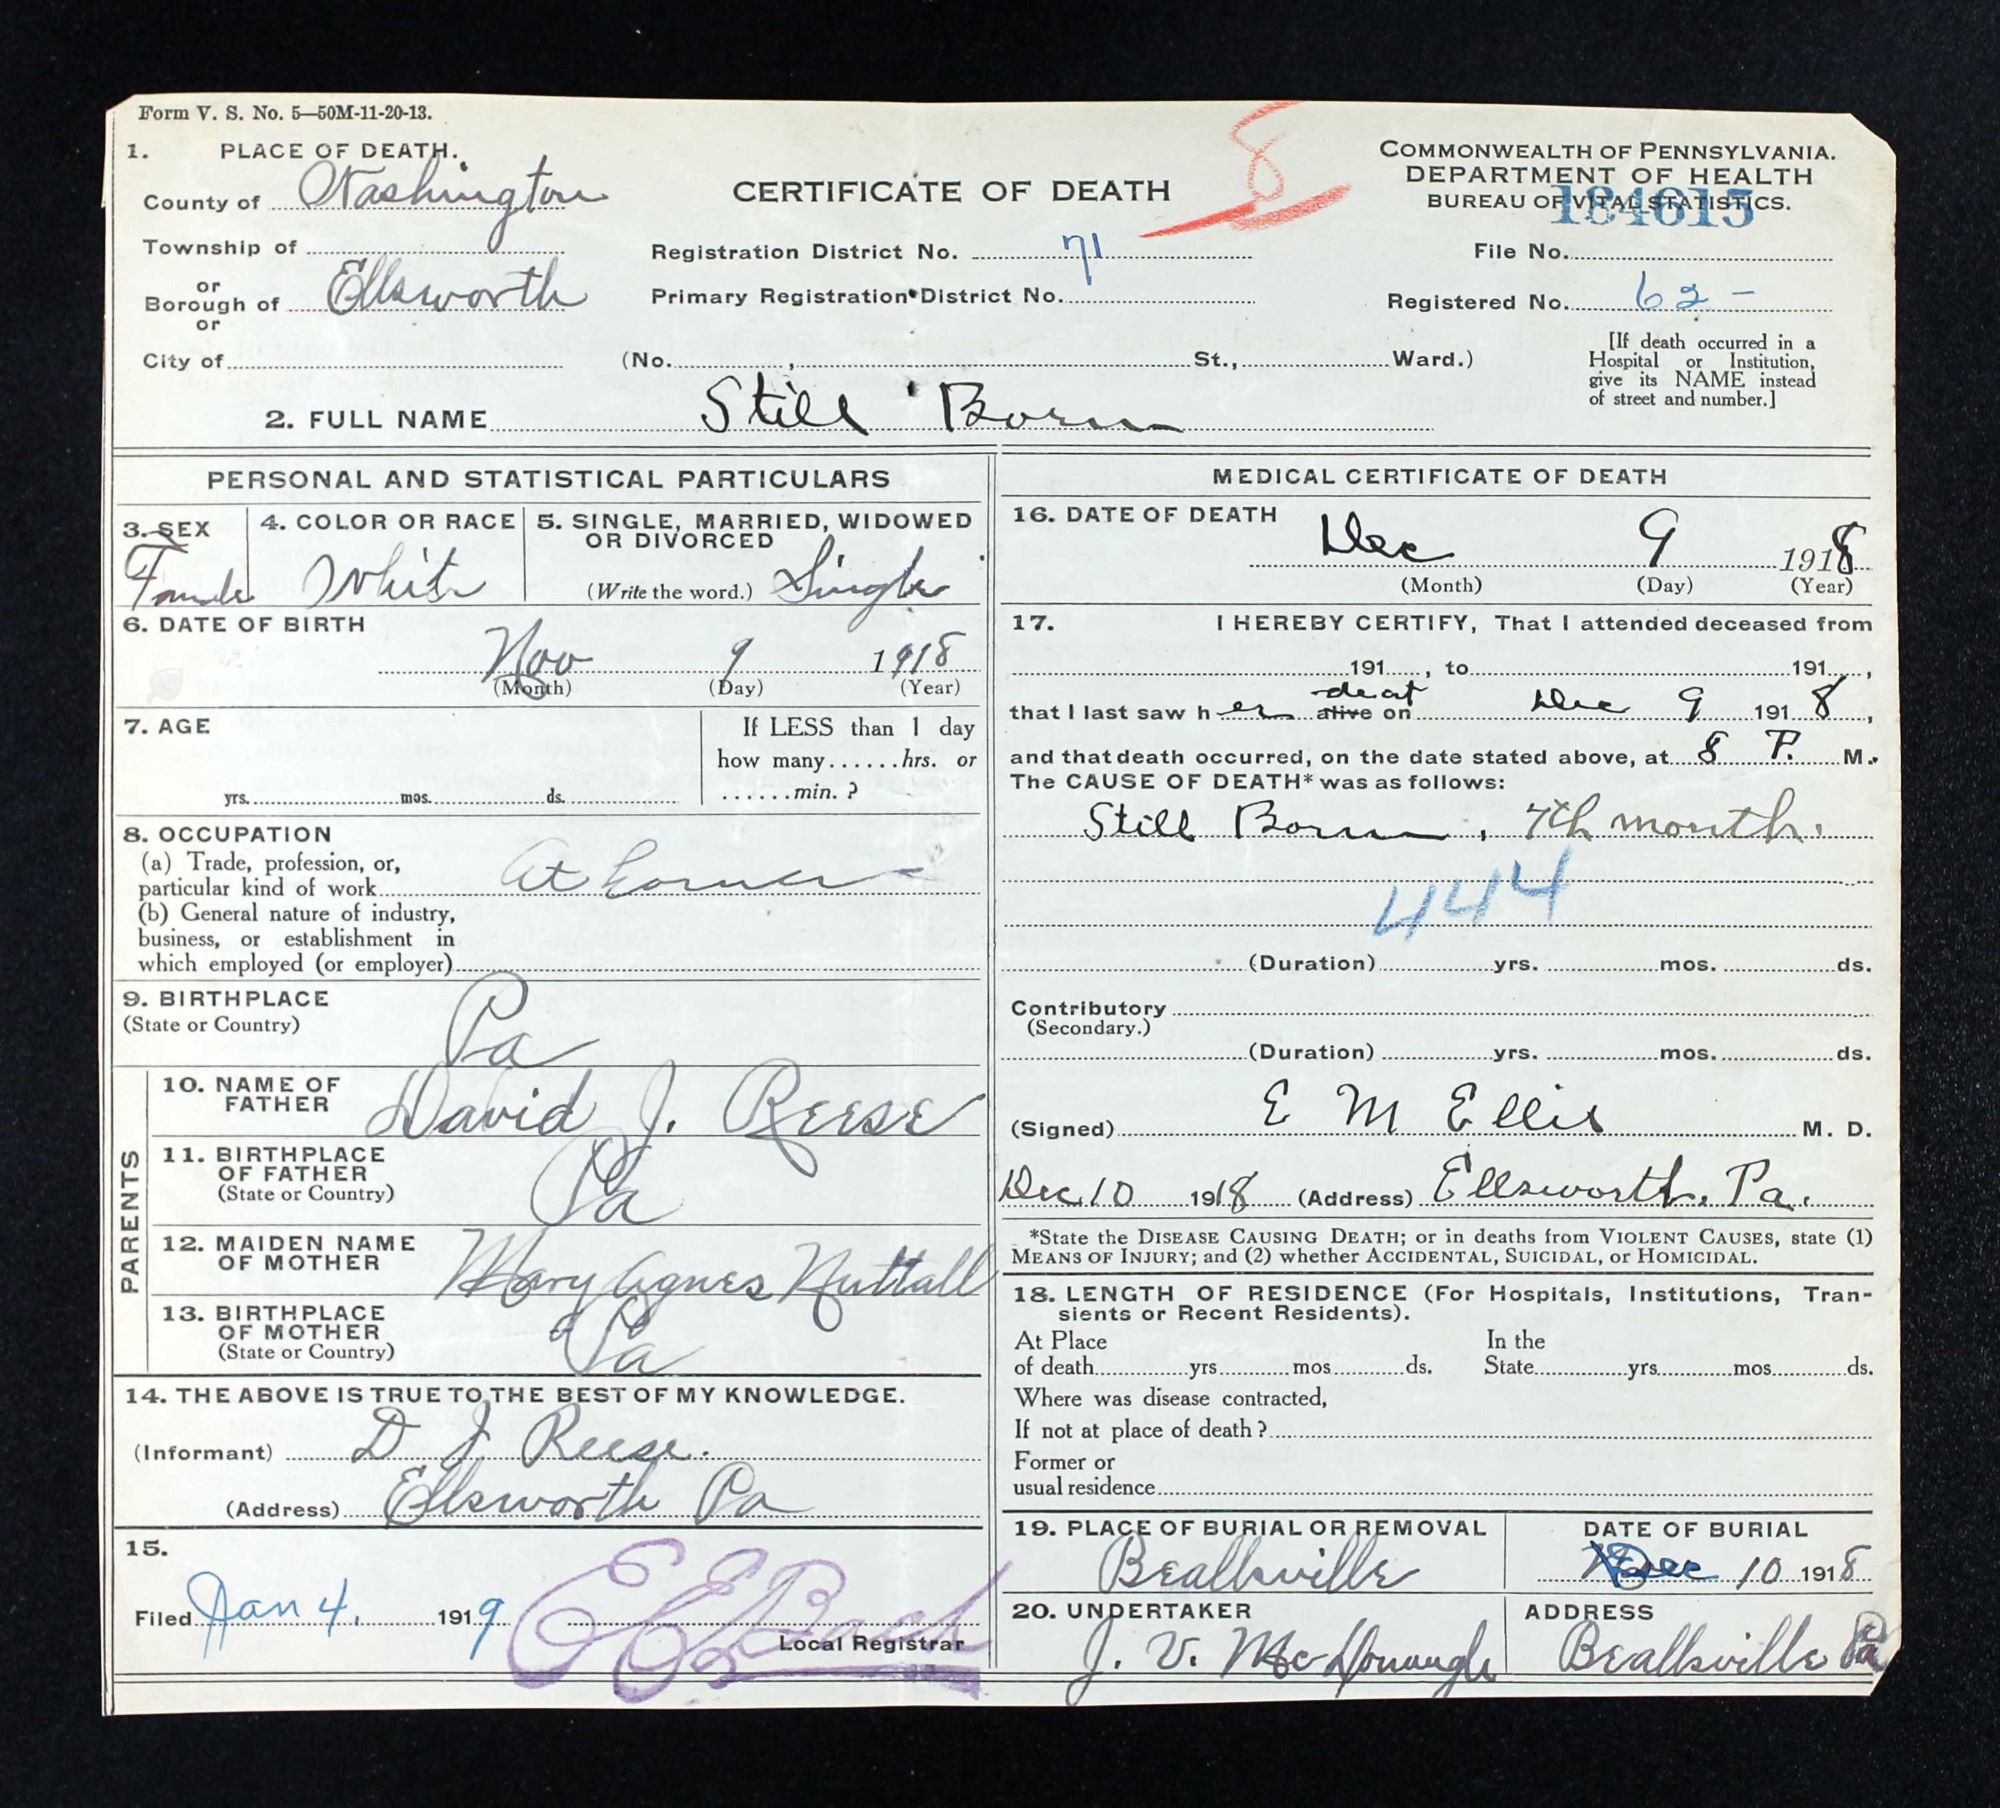 Form V. S. No. 5—50M-11-20-13.
1. PLACE OF DEATH.
County of Washington
Township of
or
Borough of Ellsworth
or
City of
CERTIFICATE OF DEATH
8
Registration District No. 71
Primary Registration District No.
(No. , St., Ward.)
COMMONWEALTH OF PENNSYLVANIA.
DEPARTMENT OF HEALTH
BUREAU OF VITAL STATISTICS.
184615
File No.
Registered No. 62 -
[If death occurred in a
Hospital or Institution,
give its NAME instead
of street and number.]
2. FULL NAME Still Born
PERSONAL AND STATISTICAL PARTICULARS
3. SEX
Female
4. COLOR OR RACE
White
5. SINGLE, MARRIED, WIDOWED
OR DIVORCED
(Write the word.) Single
6. DATE OF BIRTH
Nov 9 1918
(Month) (Day) (Year)
7. AGE
yrs. mos. ds.
If LESS than 1 day
how many......hrs. or
......min. ?
8. OCCUPATION
(a) Trade, profession, or,
particular kind of work At
(b) General nature of industry,
business, or establishment in
which employed (or employer)
9. BIRTHPLACE
(State or Country)
Pa
PARENTS
10. NAME OF
FATHER
David J. Reese
11. BIRTHPLACE
OF FATHER
(State or Country)
Pa
12. MAIDEN NAME
OF MOTHER
Mary Agnes Nuttall
13. BIRTHPLACE
OF MOTHER
(State or Country)
Pa
14. THE ABOVE IS TRUE TO THE BEST OF MY KNOWLEDGE.
(Informant) D J Reese.
(Address) Ellsworth Pa
15.
Filed Jan 4, 1919 E E Bach
Local Registrar
MEDICAL CERTIFICATE OF DEATH
16. DATE OF DEATH
Dec 9 1918
(Month) (Day) (Year)
17. I HEREBY CERTIFY, That I attended deceased from
191 , to 191 ,
deat
that I last saw h er alive on Dec 9 1918,
and that death occurred, on the date stated above, at 8 P. M.
The CAUSE OF DEATH* was as follows:
Still Born, 7th month.
444
(Duration) yrs. mos. ds.
Contributory
(Secondary.)
(Duration) yrs. mos. ds.
(Signed) E M Ellis M. D.
Dec 10 1918 (Address) Ellsworth, Pa.
*State the DISEASE CAUSING DEATH; or in deaths from VIOLENT CAUSES, state (1)
MEANS OF INJURY; and (2) whether ACCIDENTAL, SUICIDAL, or HOMICIDAL.
18. LENGTH OF RESIDENCE (For Hospitals, Institutions, Tran-
sients or Recent Residents).
At Place In the
of death yrs mos ds. State yrs. mos. ds.
Where was disease contracted,
If not at place of death ?
Former or
usual residence
19. PLACE OF BURIAL OR REMOVAL
Beallsville
DATE OF BURIAL
Dec 10 1918
20. UNDERTAKER
J. V. McDonough
ADDRESS
Beallsville Pa